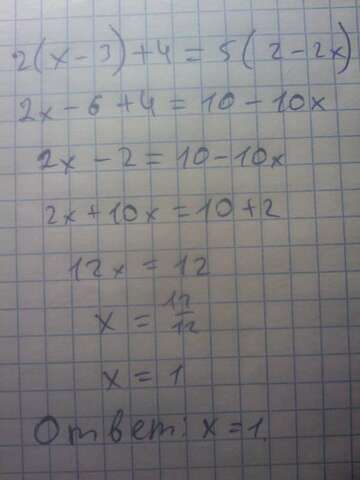 2(x-3)+4=5(2-2x)
2x-6+4=10-10x
2x-2=10-10x
2x+10x=10+2
12x=12
x=12/12
x=1
Ответ: x=1.